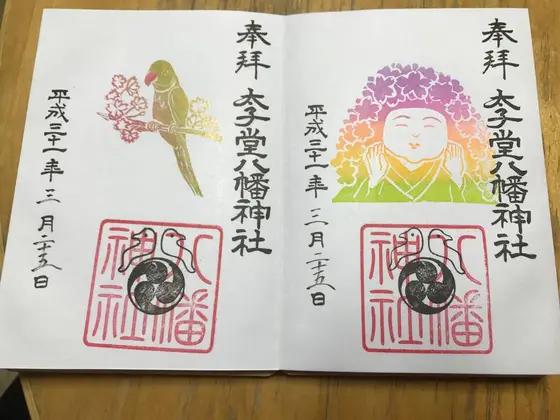 奉拝
太子堂八幡神社
平成三十一年 三月二十五日
八幡
神社
奉拝
太子堂八幡神社
平成三十一年 三月二十五日
八幡
神社